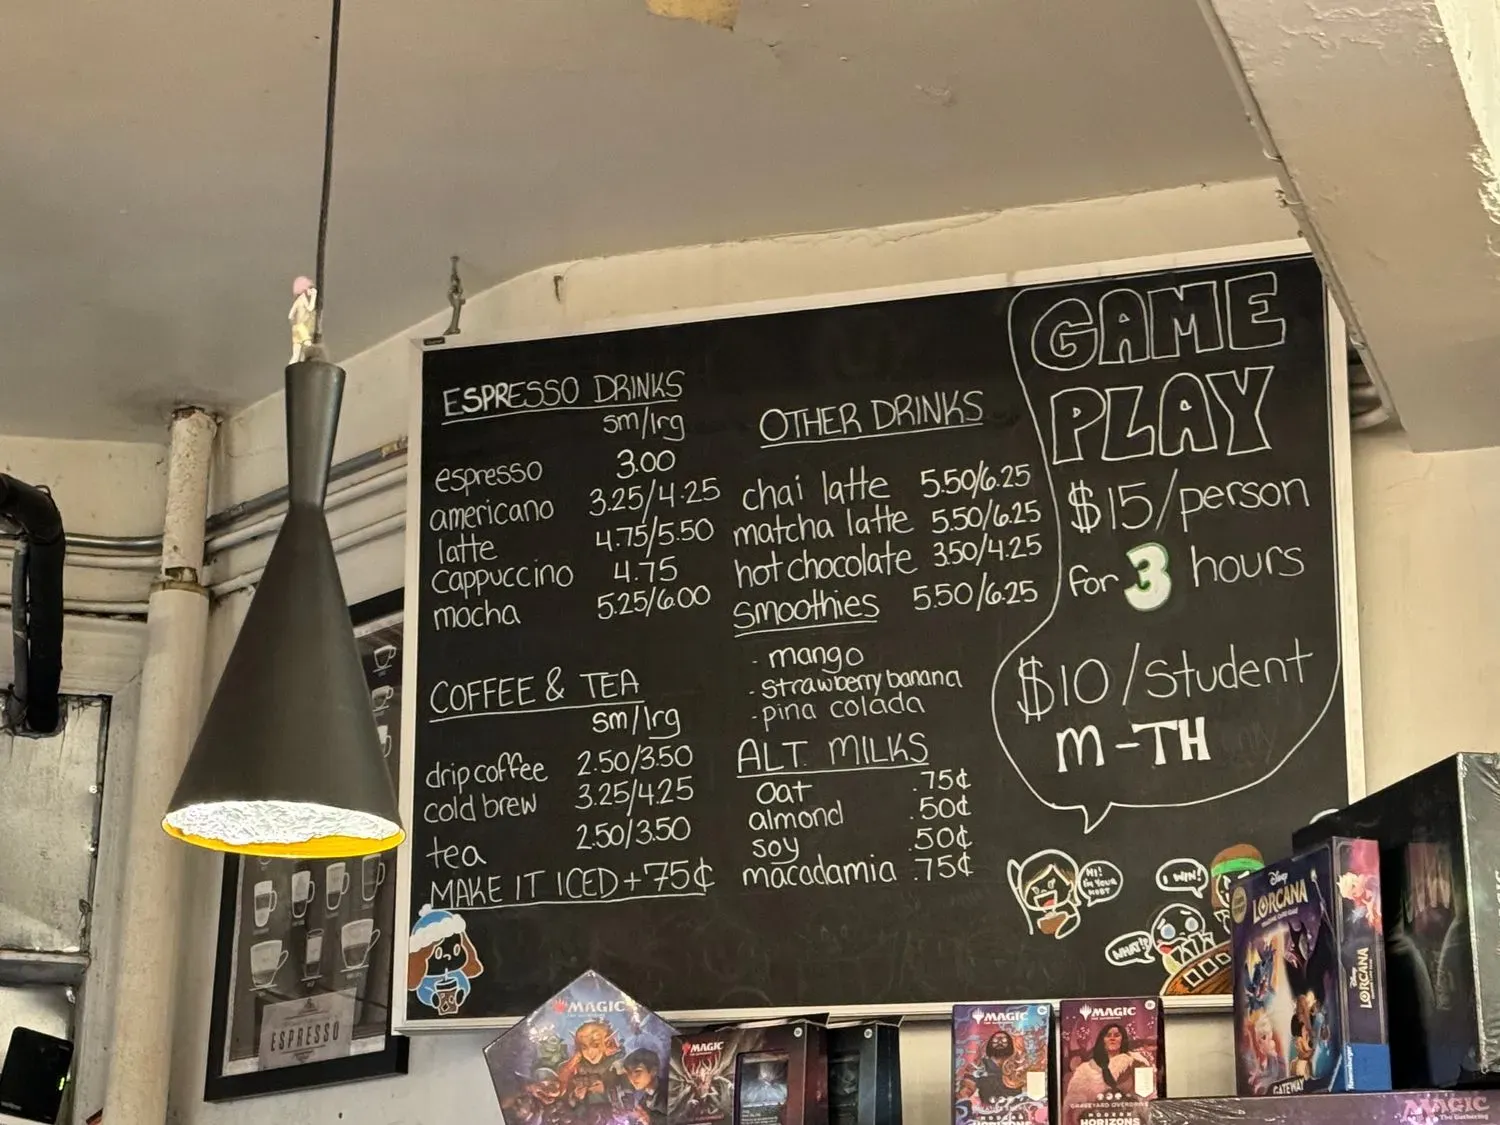 ESPRESSO DRINKS
sm/lrg
espresso 3.00
americano 3.25/4.25
latte 4.75/5.50
cappuccino 4.75
mocha 5.25/6.00
COFFEE & TEA
sm/lrg
drip coffee 2.50/3.50
cold brew 3.25/4.25
tea 2.50/3.50
MAKE IT ICED +75¢
OTHER DRINKS
chai latte 5.50/6.25
matcha latte 5.50/6.25
hot chocolate 3.50/4.25
smoothies 5.50/6.25
- mango
- strawberry banana
- pina colada
ALT. MILKS
oat .75¢
almond .50¢
soy .50¢
macadamia .75¢
GAME
PLAY
$15/person
for 3 hours
$10/student
M-TH
HI!
I'M YOUR
I WIN!
WHAT!?
ESPRESSO
MAGIC
MAGIC
MAGIC
MODERN
HORIZONS
MAGIC
GRAVEYARD OVERDRIVE
MODERN
HORIZONS
Disney
LORCANA
GATEWAY
Disney
LORCANA
Ravensburger
MAGIC
The Gathering